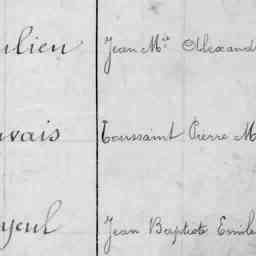 ulien Jean Mie Alexand
uvais Toussaint Pierre M
yeul Jean Baptiste Emile